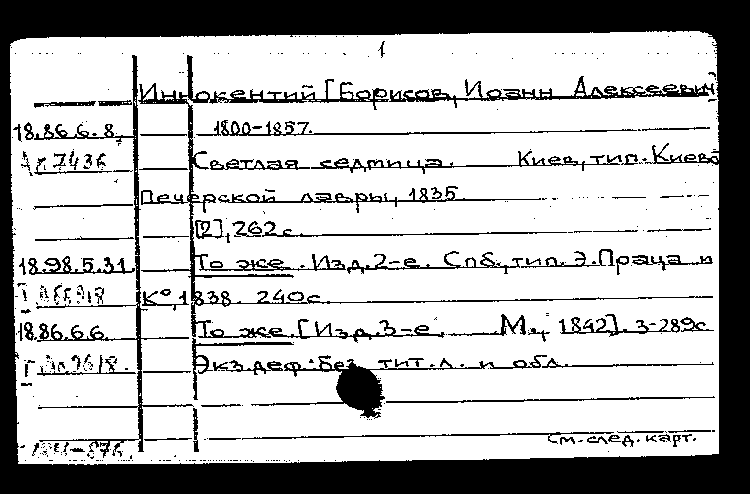 1
Иннокентий [Борисов, Иоанн Алексеевич
18.86.6.8. 1800-1857.
Ап 7436 Светлая седмица. Киев, тип. Киево
Печерской лавры, 1835.
[2], 262с.
18.98.5.31. То же. Изд. 2-е. Спб., тип. Э. Праца и
К°, 1838. 240с.
18.86.6.6. То же. [Изд. 3-е. М., 1842]. 3-289с
Экз. деф.: Без тит. л. и обл.
См. след. карт.